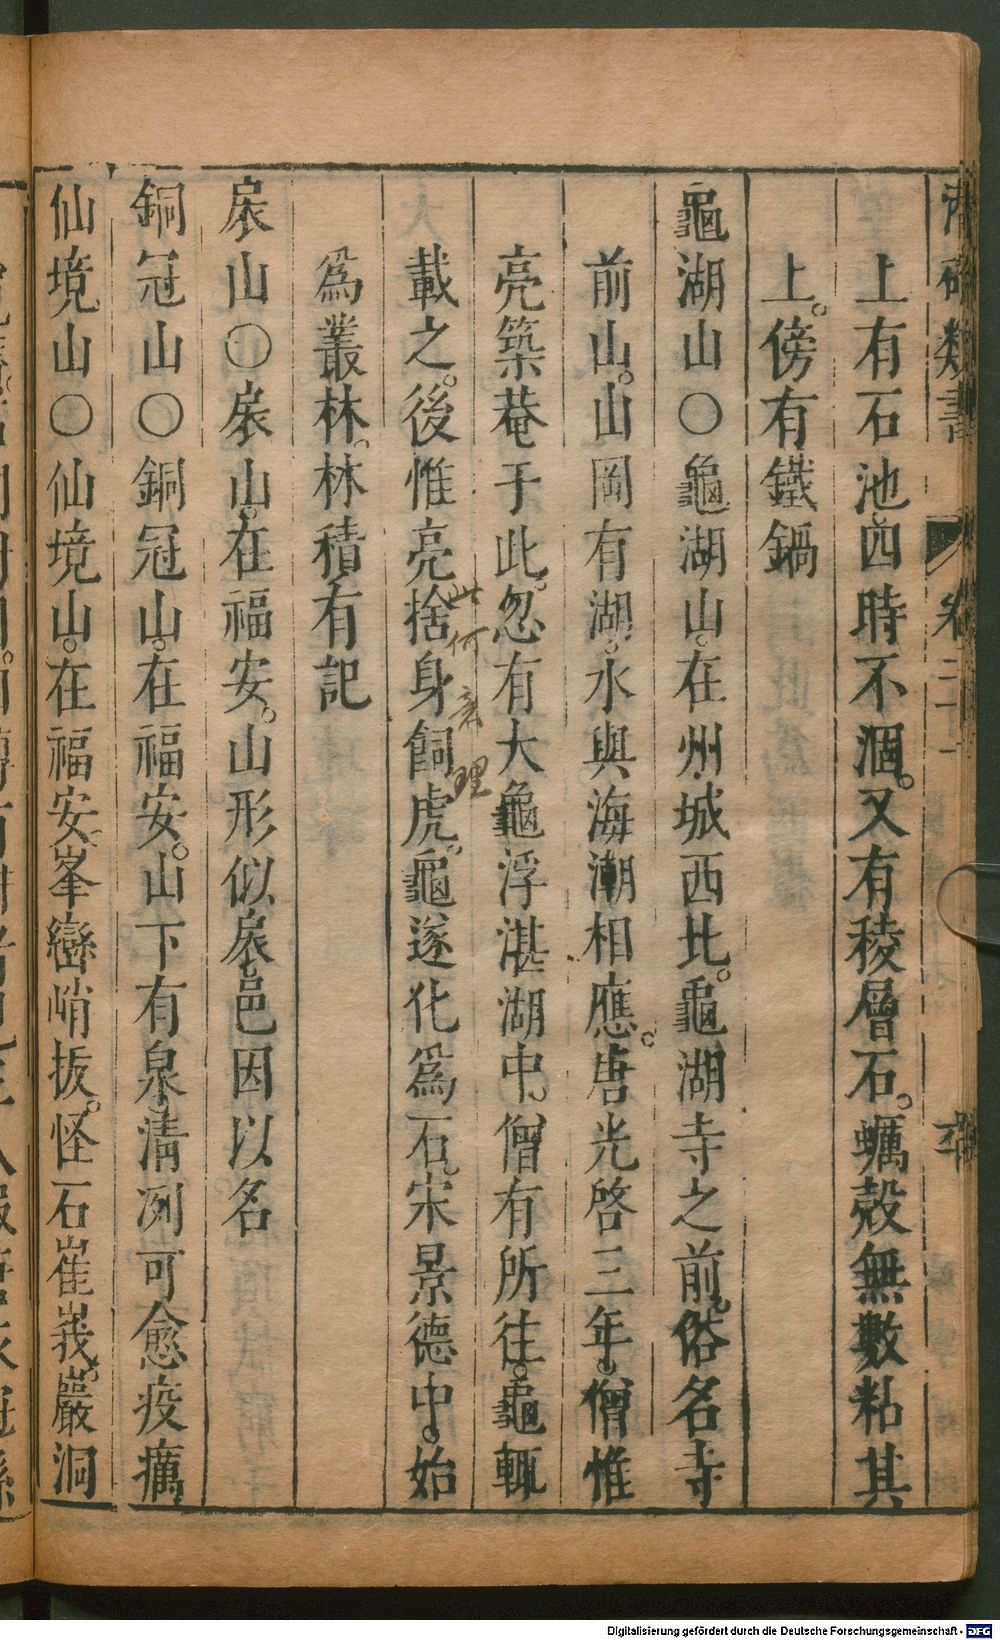 上有石池四時不涸。又有稜層石。蠣殼無數粘其
上。傍有鐵鍋
龜湖山○龜湖山。在州城西比。龜湖寺之前。俗名寺
前山。山岡有湖。水與海潮相應。唐光啓三年。僧惟
亮築菴于此。忽有大龜浮湛湖中。僧有所往。龜輒
載之。後惟亮捨身飼虎。龜遂化爲石。宋景德中。始
爲叢林。林積有記
此何意理
扆山○扆山。在福安。山形似扆。邑因以名
銅冠山○銅冠山。在福安。山下有泉。清冽可愈疫癘
仙境山○仙境山。在福安。峯巒峭拔。怪石崔嵬。巖洞
Digitalisierung gefördert durch die Deutsche Forschungsgemeinschaft - DFG